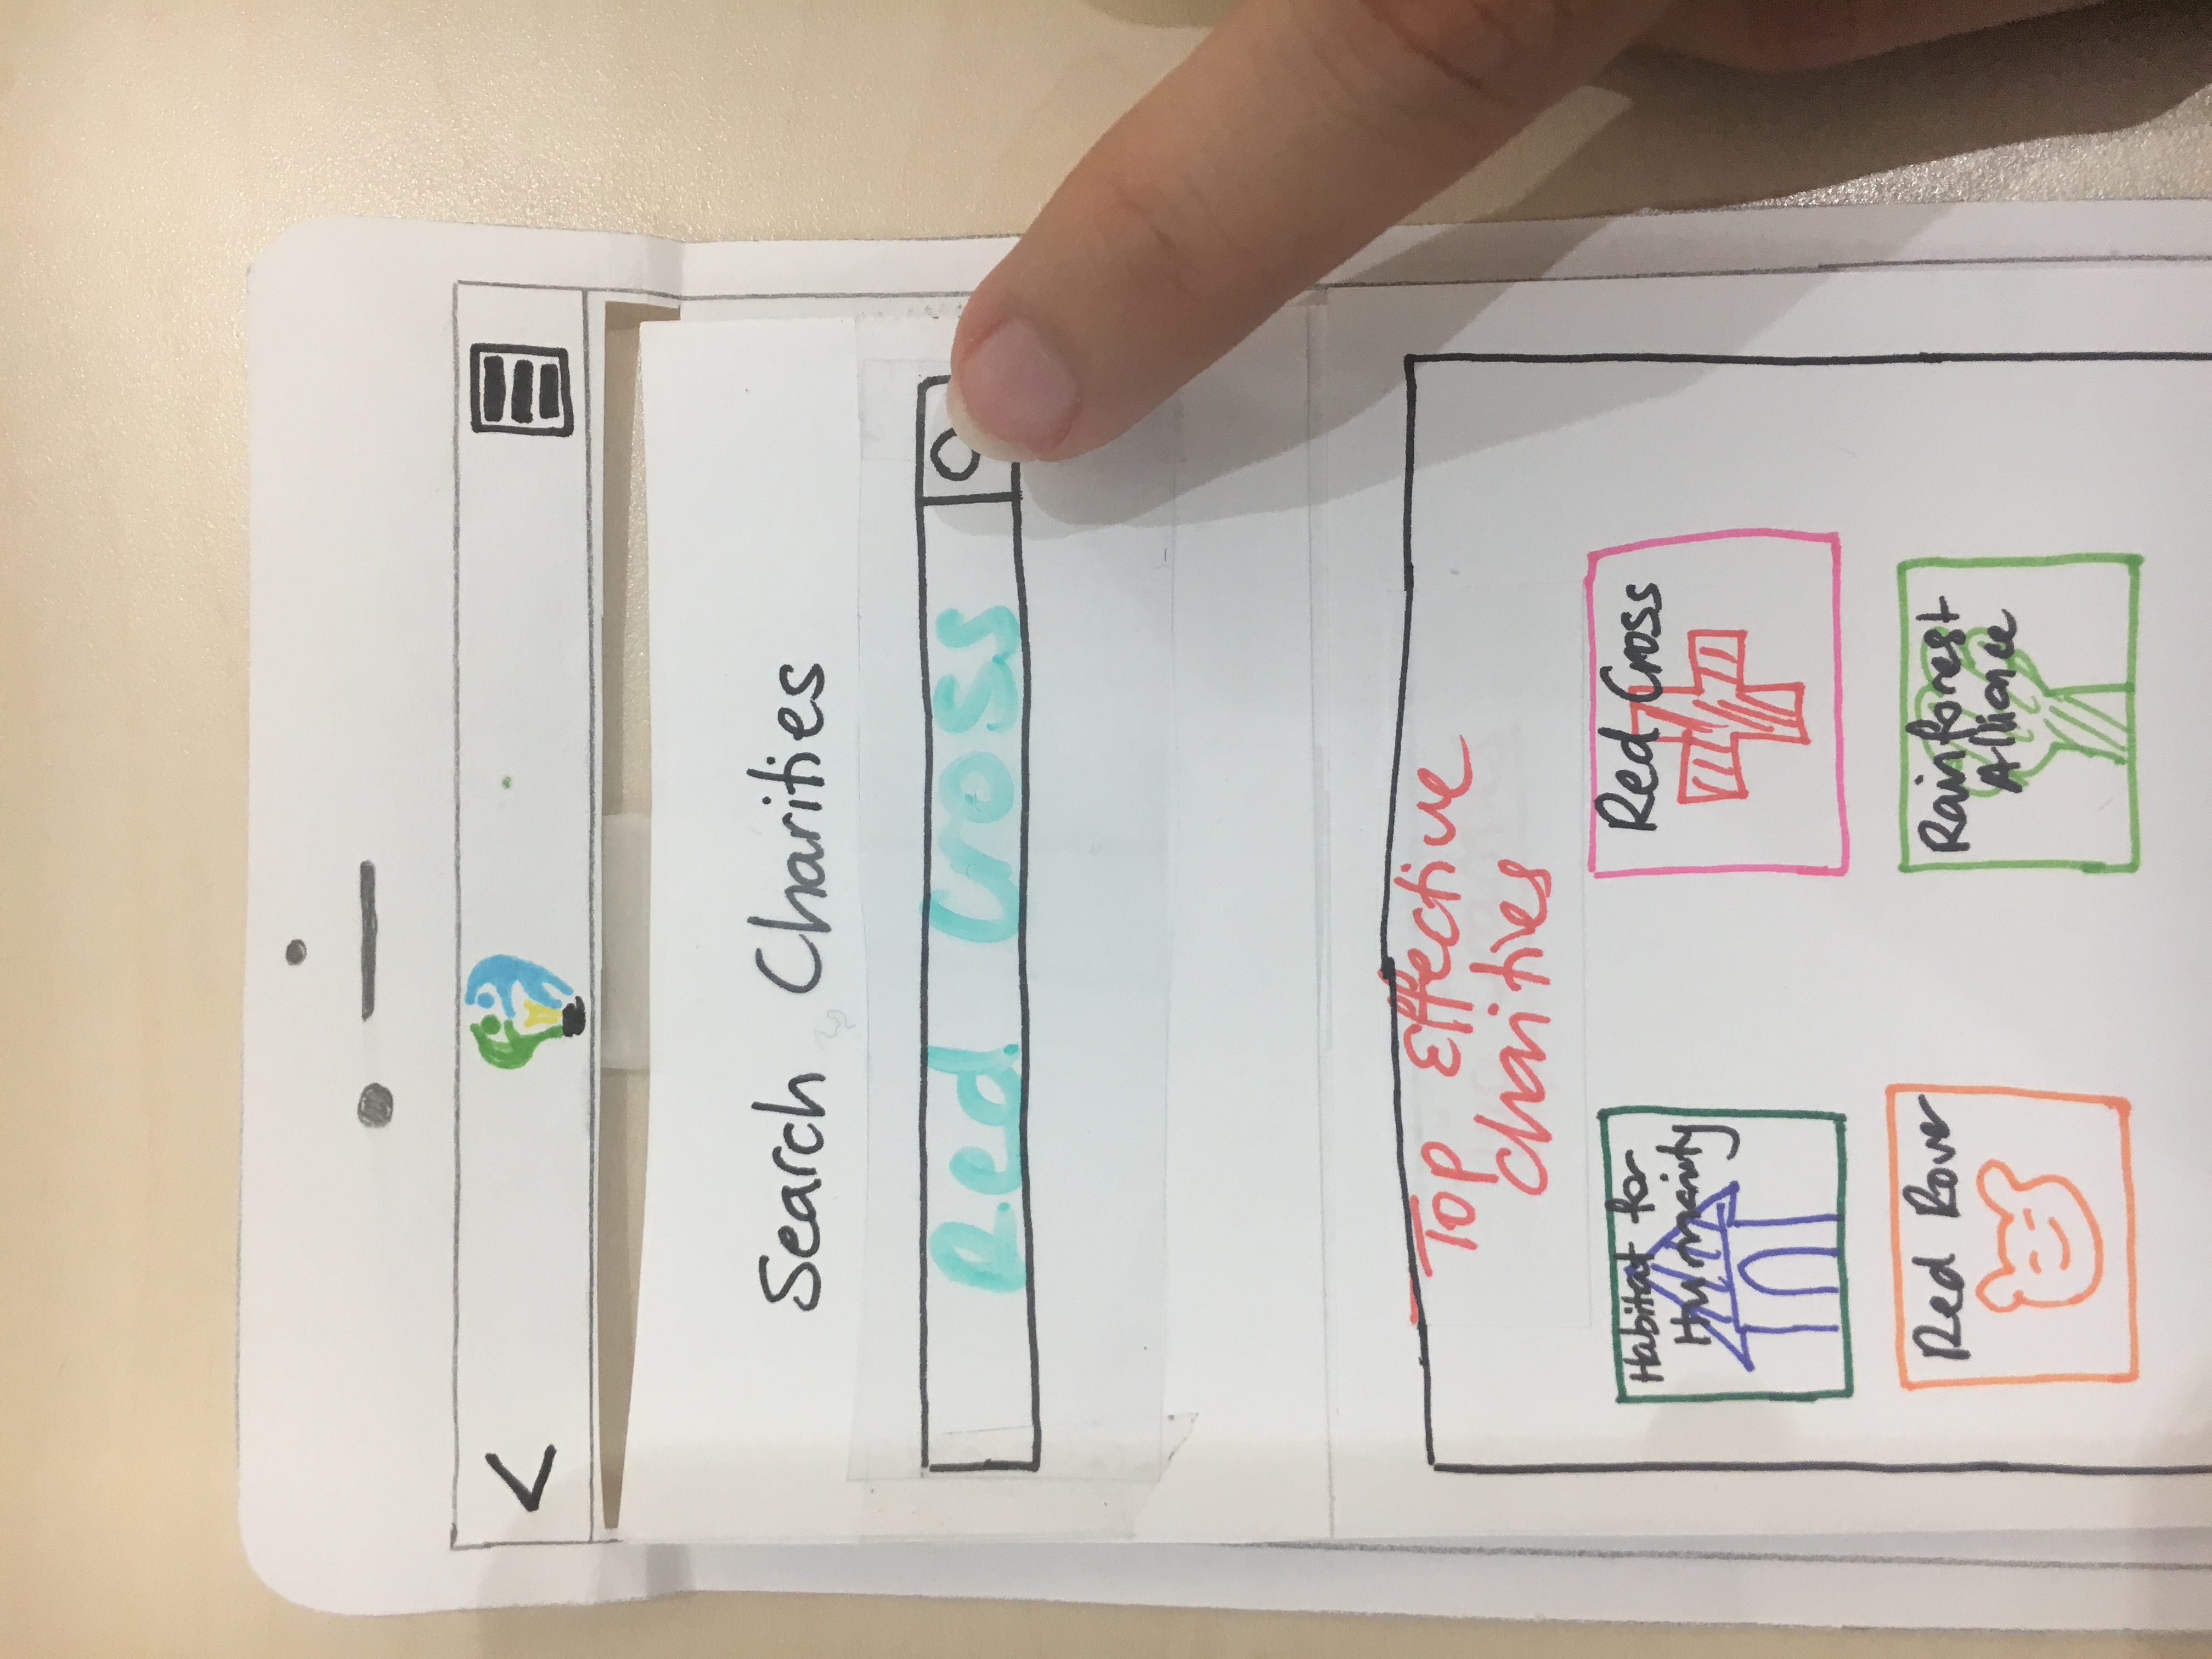 Search Charities
Red Cross
Top Effective
chaities
Habitat for
Humanity
Red Cross
Red Rover
Rainforest
Alliance